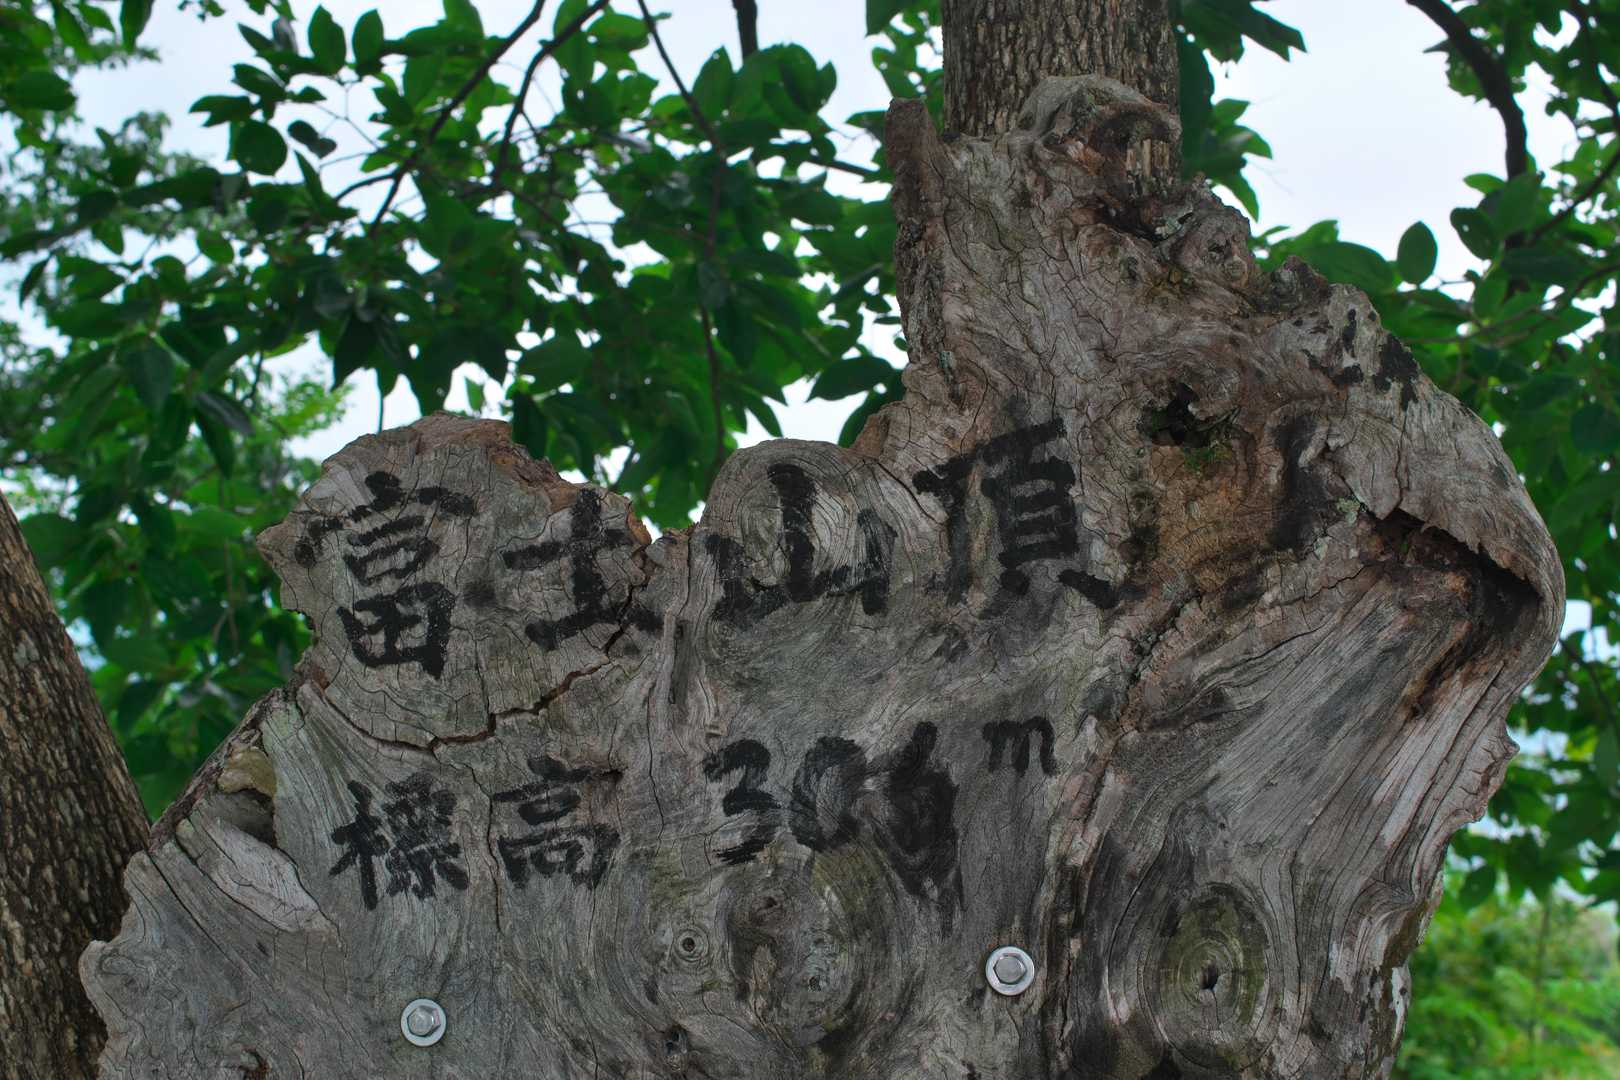 富士山頂
標高 306m